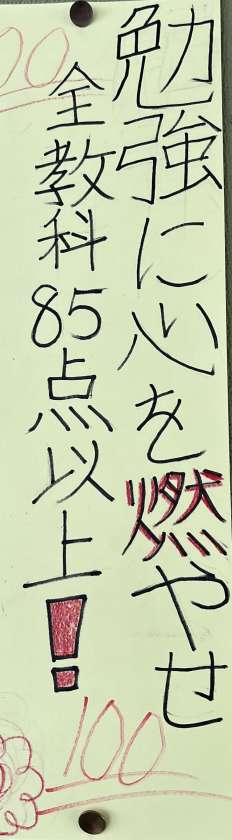 勉強に心を燃やせ
全教科85点以上！
100